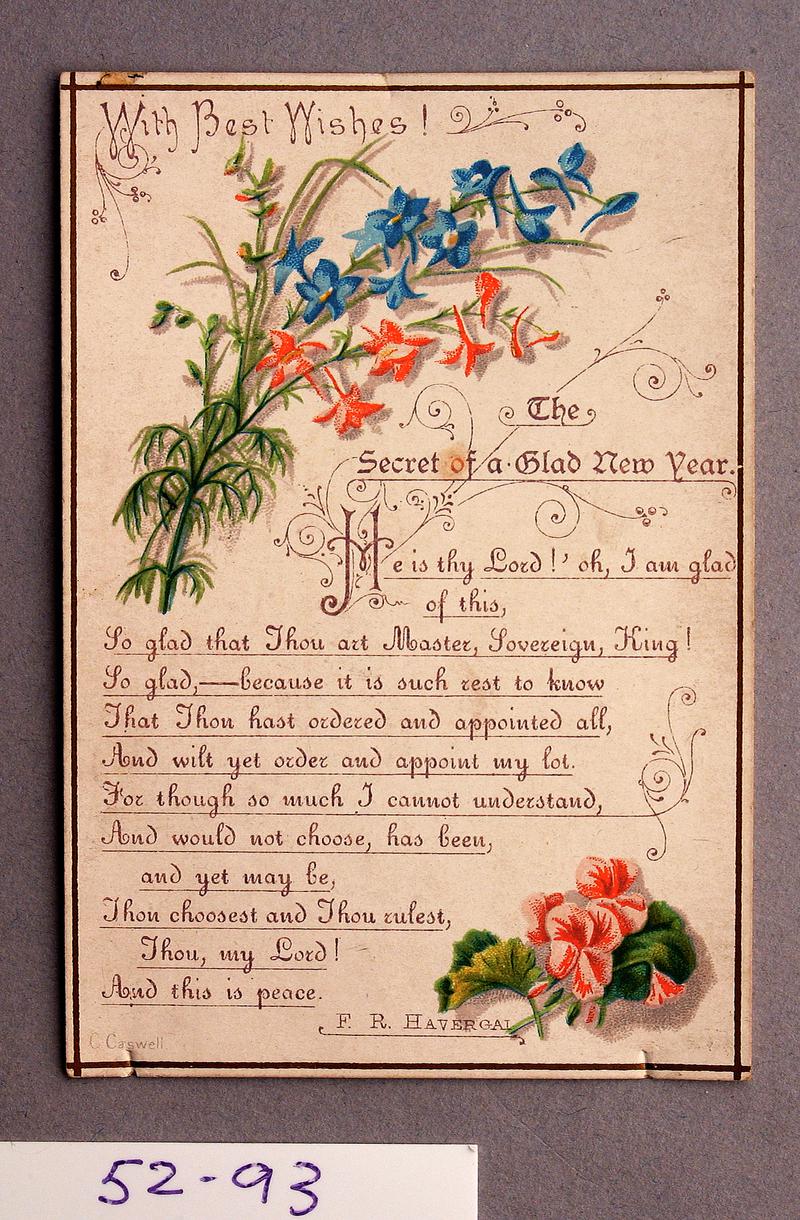 With Best Wishes!
The
Secret of a Glad New Year.
He is thy Lord!' oh, I am glad
of this,
So glad that Thou art Master, Sovereign, King!
So glad,—because it is such rest to know
That Thou hast ordered and appointed all,
And wilt yet order and appoint my lot.
For though so much I cannot understand,
And would not choose, has been,
and yet may be,
Thou choosest and Thou rulest,
Thou, my Lord!
And this is peace.
F. R. HAVERGAL
C. Caswell
52-93